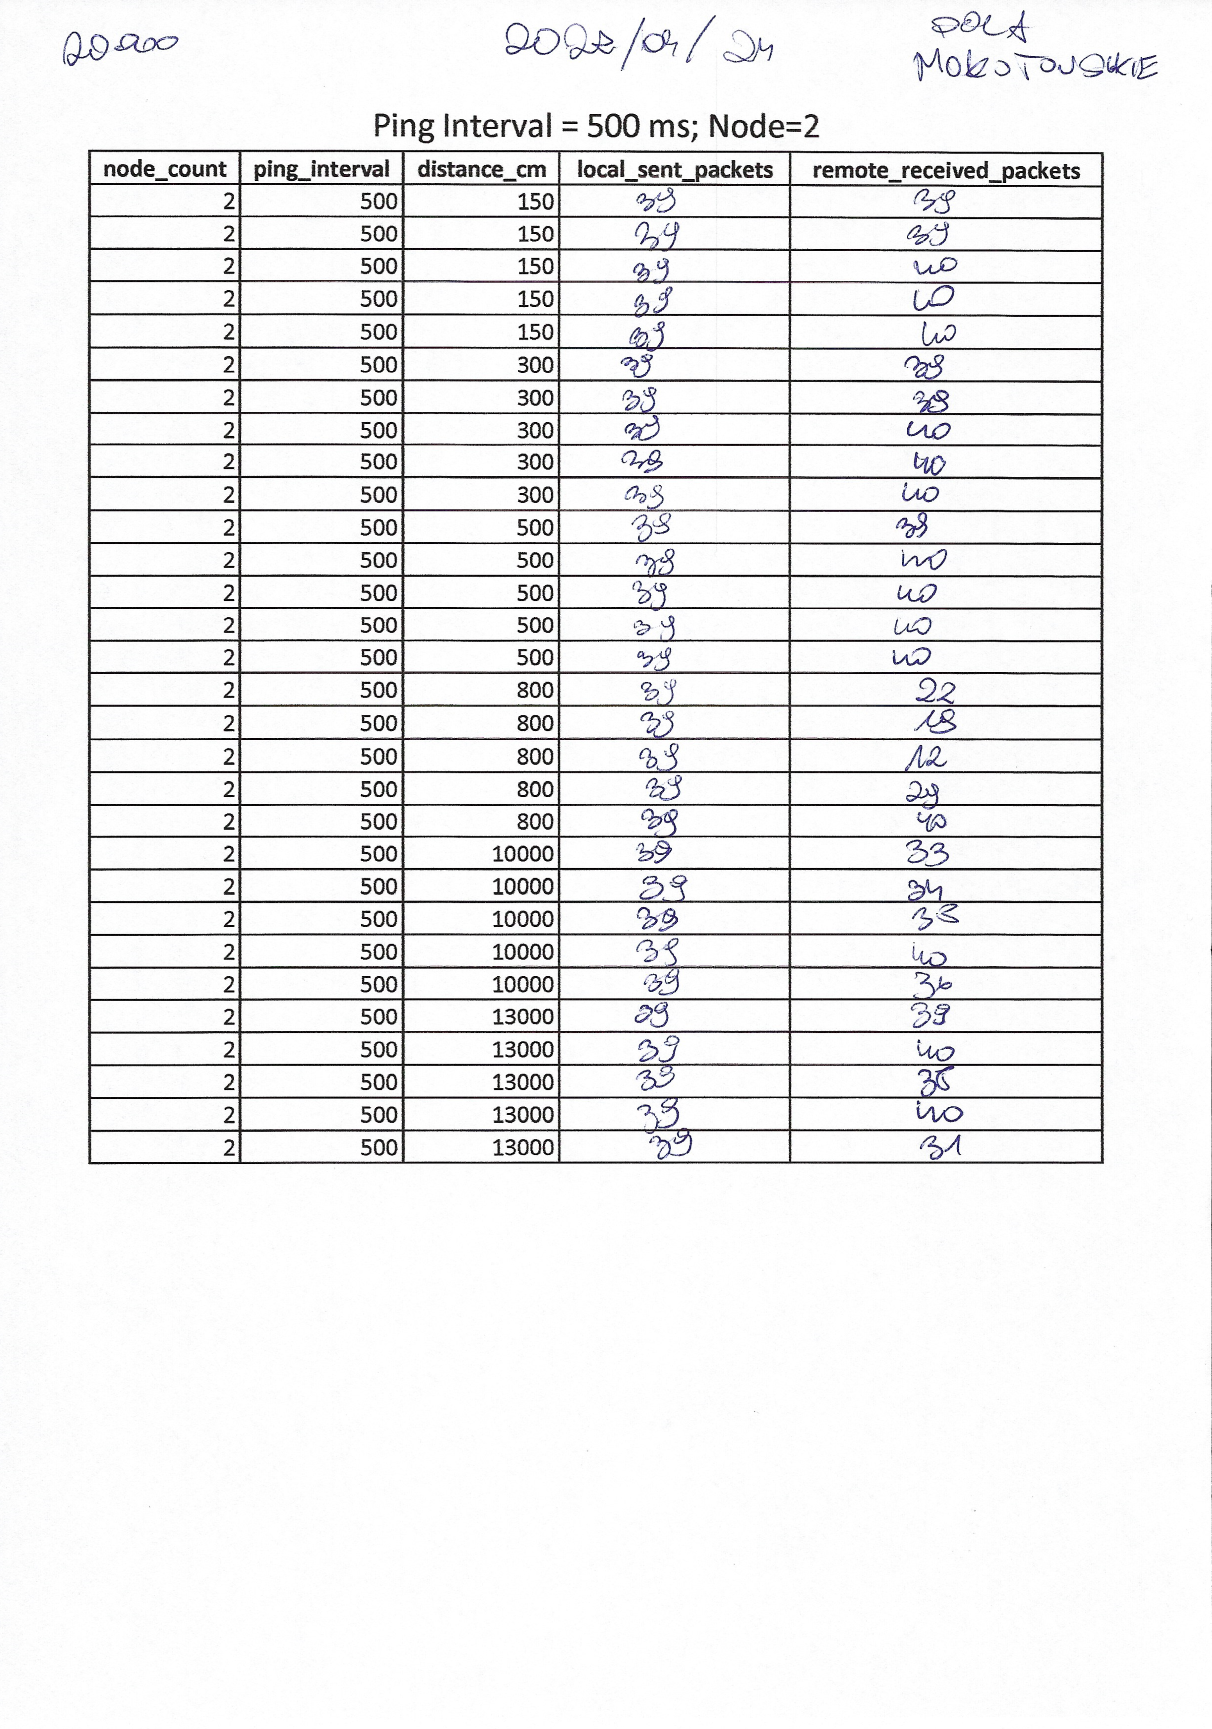 2022/04/24
POLA
MOKOTOWSKIE
Ping Interval = 500 ms; Node=2
node_count ping_interval distance_cm local_sent_packets remote_received_packets
2 500 150 39 39
2 500 150 39 39
2 500 150 39 40
2 500 150 39 40
2 500 150 39 40
2 500 300 39 39
2 500 300 39 39
2 500 300 39 40
2 500 300 39 40
2 500 300 39 40
2 500 500 39 39
2 500 500 39 40
2 500 500 39 40
2 500 500 39 40
2 500 500 39 40
2 500 800 39 22
2 500 800 39
2 500 800 39 12
2 500 800 39 29
2 500 800 39 40
2 500 10000 39 33
2 500 10000 39 34
2 500 10000 39
2 500 10000 39 40
2 500 10000 39 36
2 500 13000 39 39
2 500 13000 39 40
2 500 13000 39 35
2 500 13000 39 40
2 500 13000 39 31